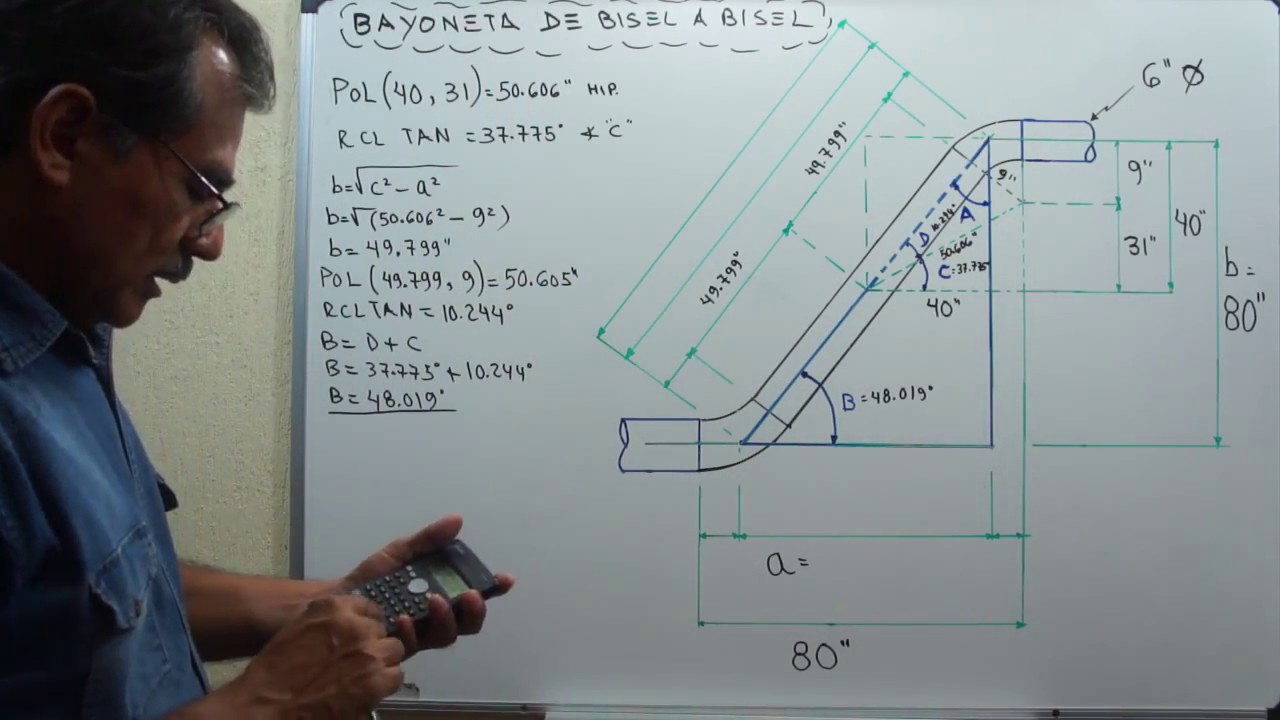 BAYONETA DE BISEL A BISEL
POL (40, 31) = 50.606" HIP.
RCL TAN = 37.775° ∡ "C"
b=√c² - a²
b=√(50.606² - 9²)
b= 49.799"
POL (49.799, 9) = 50.605"
RCL TAN = 10.244°
B = D + C
B = 37.775° + 10.244°
B = 48.019°
6" Ø
49.799"
49.799"
9"
A
D 10.244°
50.606"
C=37.775°
40"
9"
31"
40"
b=
80"
B = 48.019°
a=
80"